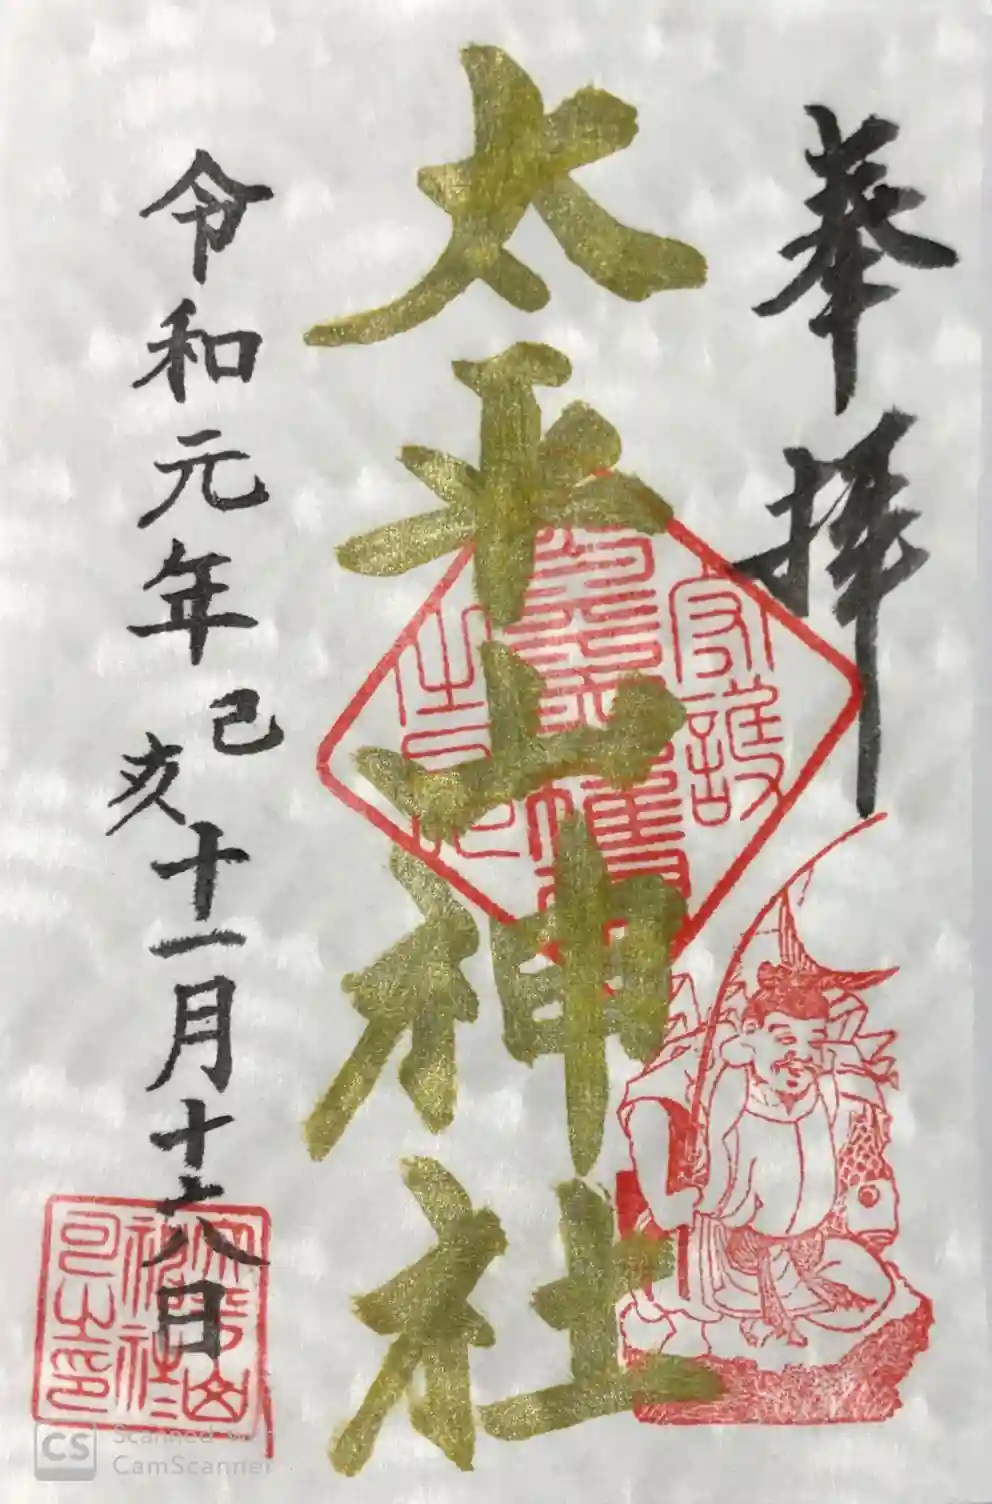 奉拝
太平山神社
令和元年己亥十一月十六日
CS
Scanned with
CamScanner